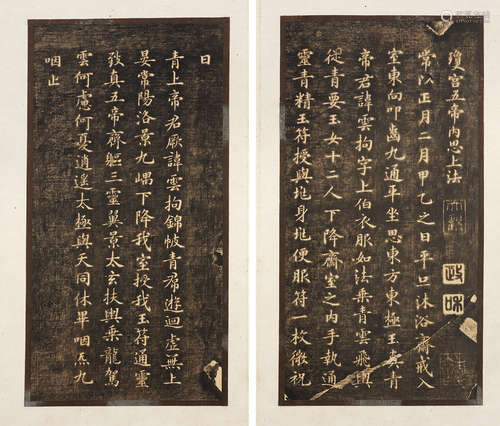 瓊宮五帝內思上法
常以正月二月甲乙之日平旦沐浴齋戒入
室東向叩齒九通平坐思東方東極玉真青
帝君諱雲拘字上伯衣服如法乘青雲飛輿
從青要玉女十二人下降齋室之內手執通
靈青精玉符授與兆身兆便服符一枚微祝
曰
青上帝君厥諱雲拘錦帔青帬遊迴虛無上
晏常陽洛景九嵎下降我室授我玉符通靈
致真五帝齊軀三靈翼景太玄扶輿乘龍駕
雲何慮何憂逍遙太極與天同休畢咽炁九
咽止
政和